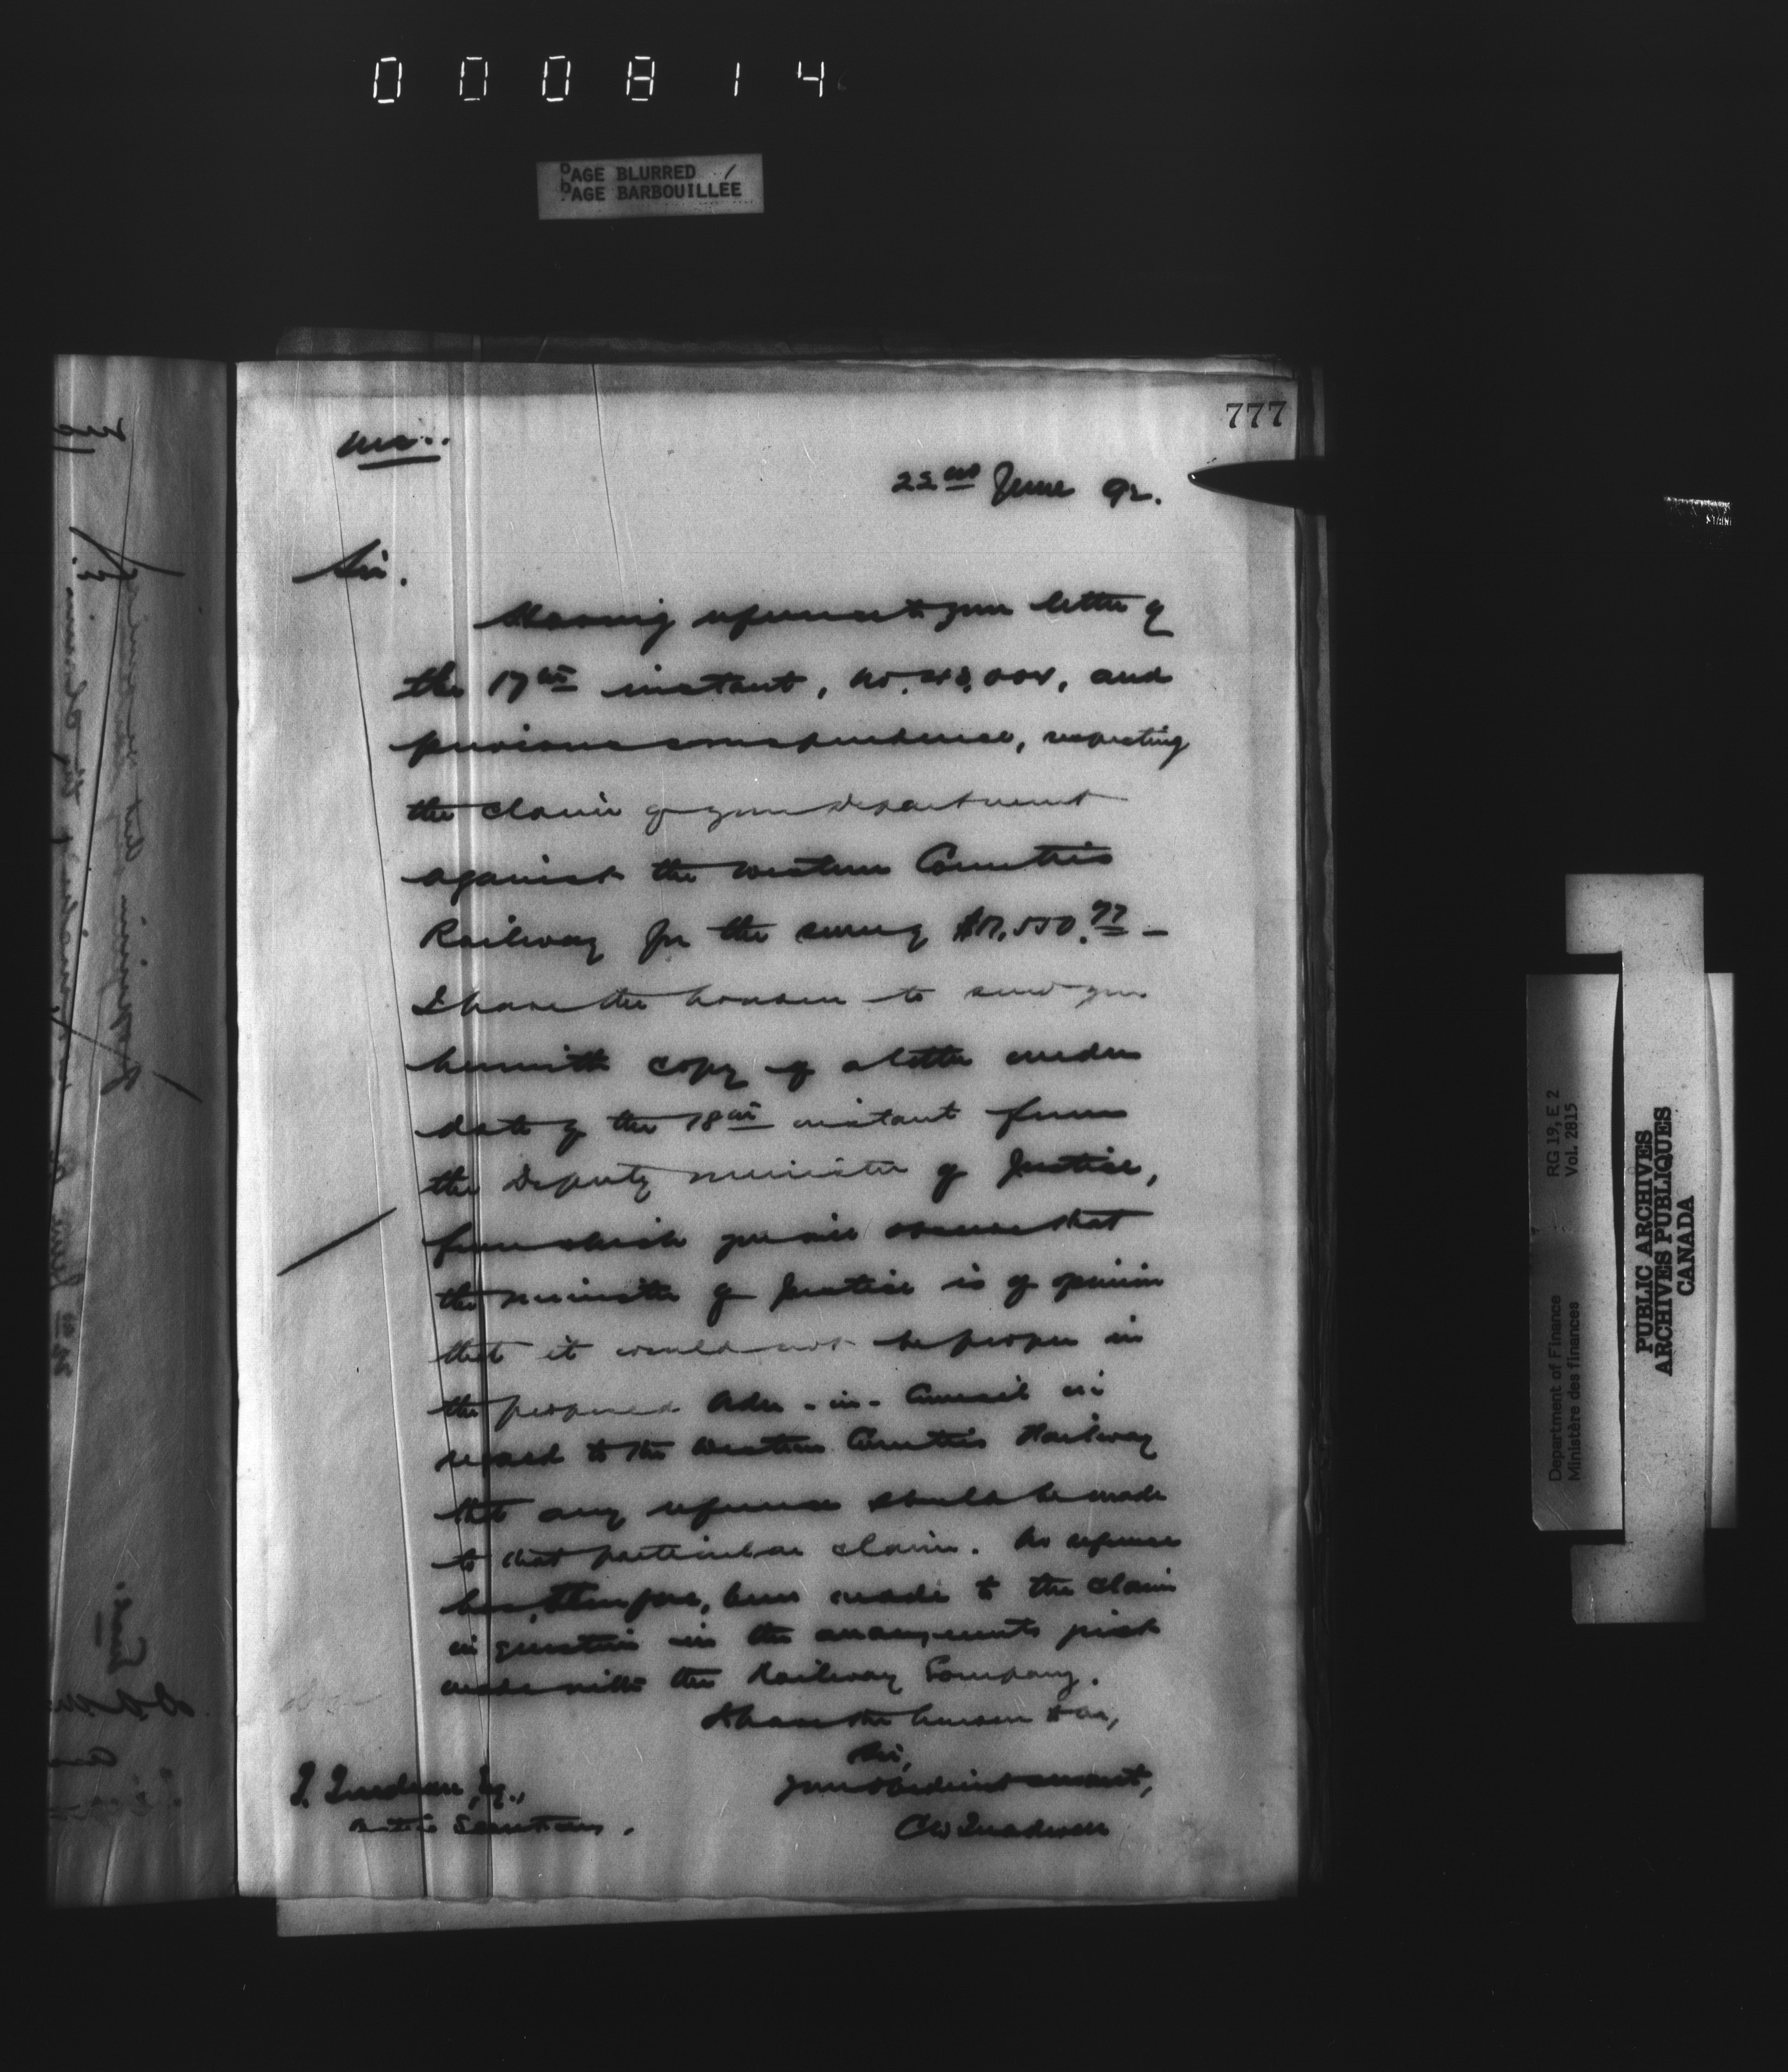 000814
PAGE BLURRED
PAGE BARBOUILLÉE
777
22nd June 92.
Sir.
Having reference to your letter of
the 17th instant, No. and
previous correspondence, respecting
the claim of your Department
against the Western Counties
Railway for the sum of
I have the honour to send you
herewith copy of a letter under
date of the 18th instant from
the Deputy Minister of Justice,
from which you will observe that
the Minister of Justice is of opinion
that it would not be proper in
the proposed Order-in-Council in
regard to the Western Counties Railway
that any reference should be made
to that particular claim. No reference
has, therefore, been made to the claim
in question in the arrangements just
made with the Railway Company.
I have the honour to be,
Sir,
Your obedient servant,
T. Trudeau, Esq.,
Secretary.
RG 19, E 2
Vol. 2815
Department of Finance
Ministère des finances
PUBLIC ARCHIVES
ARCHIVES PUBLIQUES
CANADA